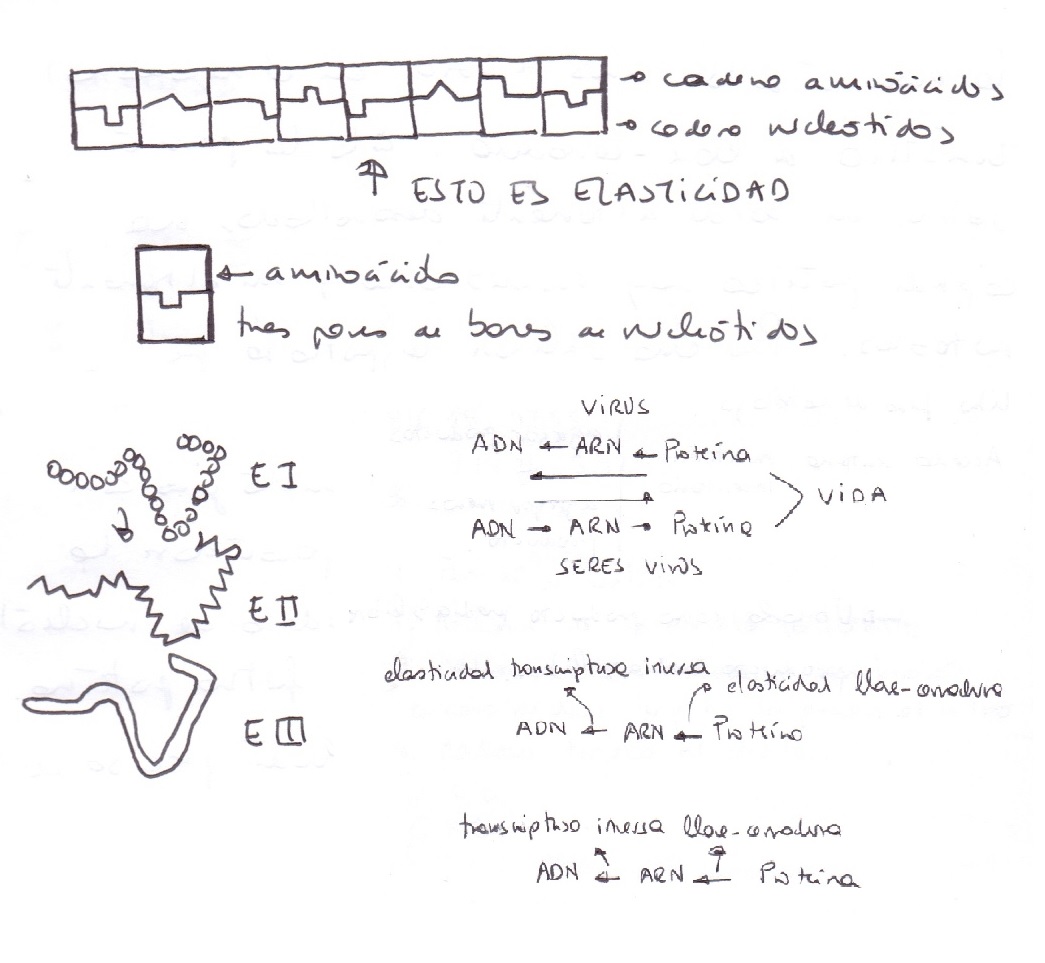 cadena aminoácidos
cadena nucleótidos
ESTO ES ELASTICIDAD
aminoácido
tres pares de bases de nucleótidos
VIRUS
ADN ← ARN ← Proteína
VIDA
ADN → ARN → Proteína
SERES VIVOS
E I
E II
E III
elasticidad transcriptasa inversa
elasticidad llave-cerradura
ADN ← ARN ← Proteína
transcriptasa inversa llave-cerradura
ADN ← ARN ← Proteína